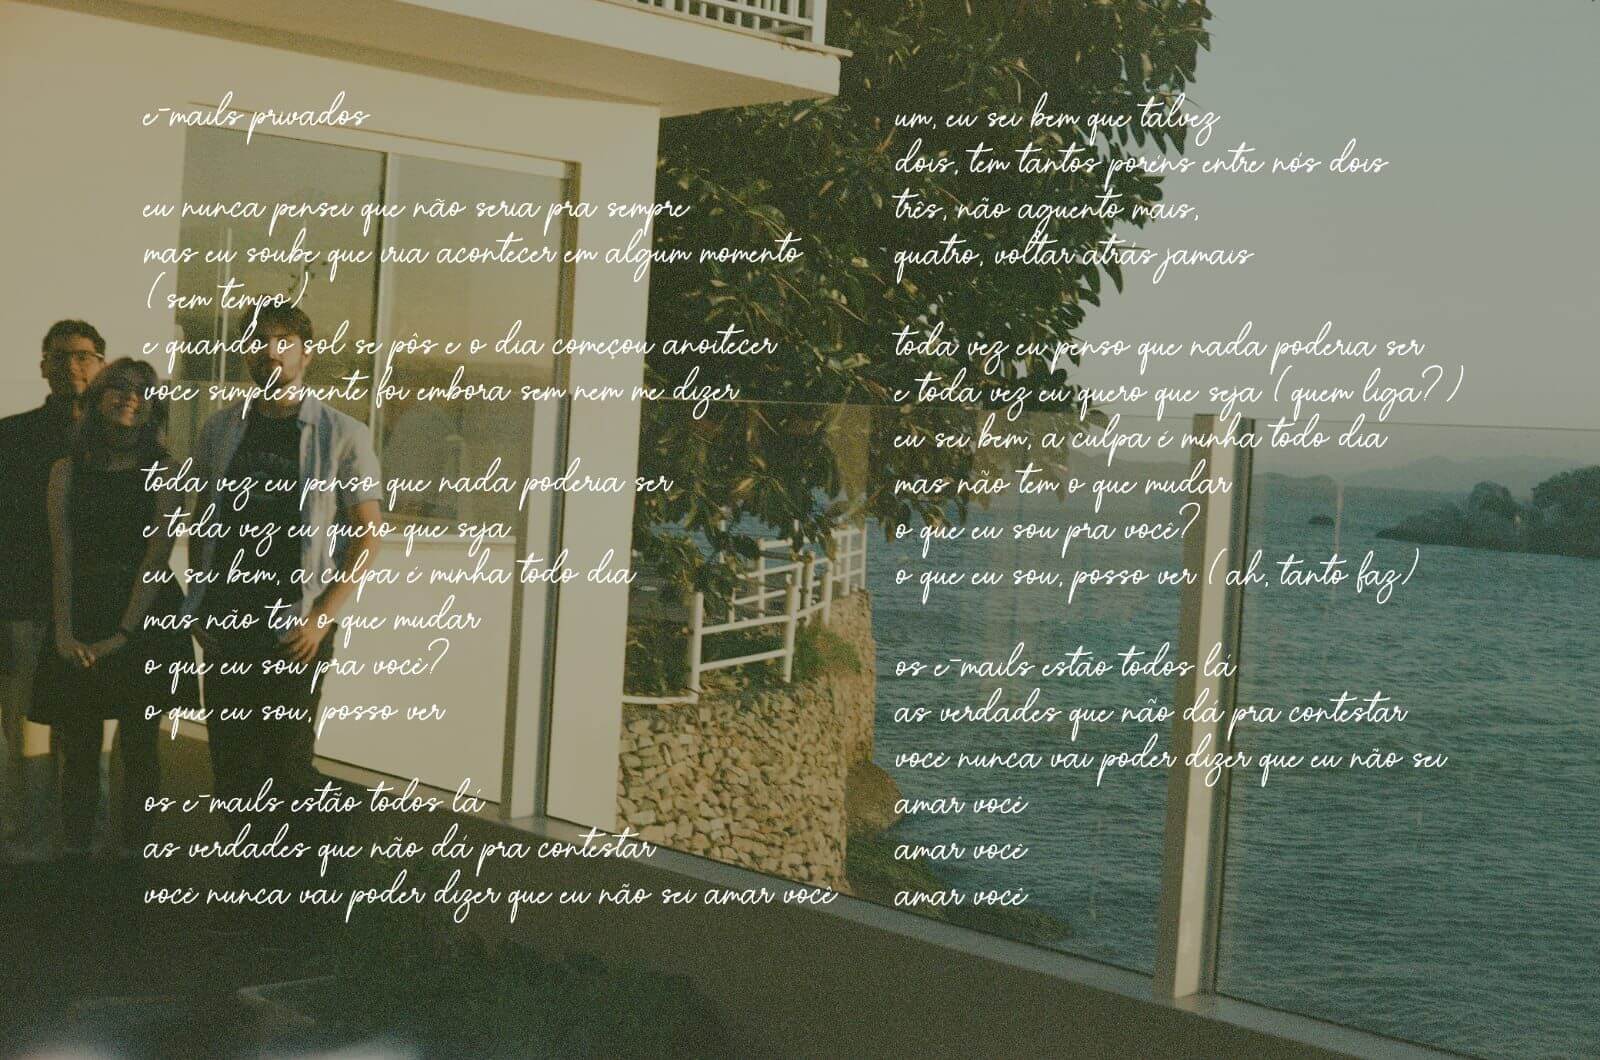 e-mails privados
eu nunca pensei que não seria pra sempre
mas eu soube que iria acontecer em algum momento
(sem tempo)
e quando o sol se pôs e o dia começou anoitecer
você simplesmente foi embora sem nem me dizer
toda vez eu penso que nada poderia ser
e toda vez eu quero que seja
eu sei bem, a culpa é minha todo dia
mas não tem o que mudar
o que eu sou pra você?
o que eu sou, posso ver
os e-mails estão todos lá
as verdades que não dá pra contestar
você nunca vai poder dizer que eu não sei amar você
um, eu sei bem que talvez
dois, tem tantos poréns entre nós dois
três, não aguento mais,
quatro, voltar atrás jamais
toda vez eu penso que nada poderia ser
e toda vez eu quero que seja (quem liga?)
eu sei bem, a culpa é minha todo dia
mas não tem o que mudar
o que eu sou pra você?
o que eu sou, posso ver (ah, tanto faz)
os e-mails estão todos lá
as verdades que não dá pra contestar
você nunca vai poder dizer que eu não sei
amar você
amar você
amar você